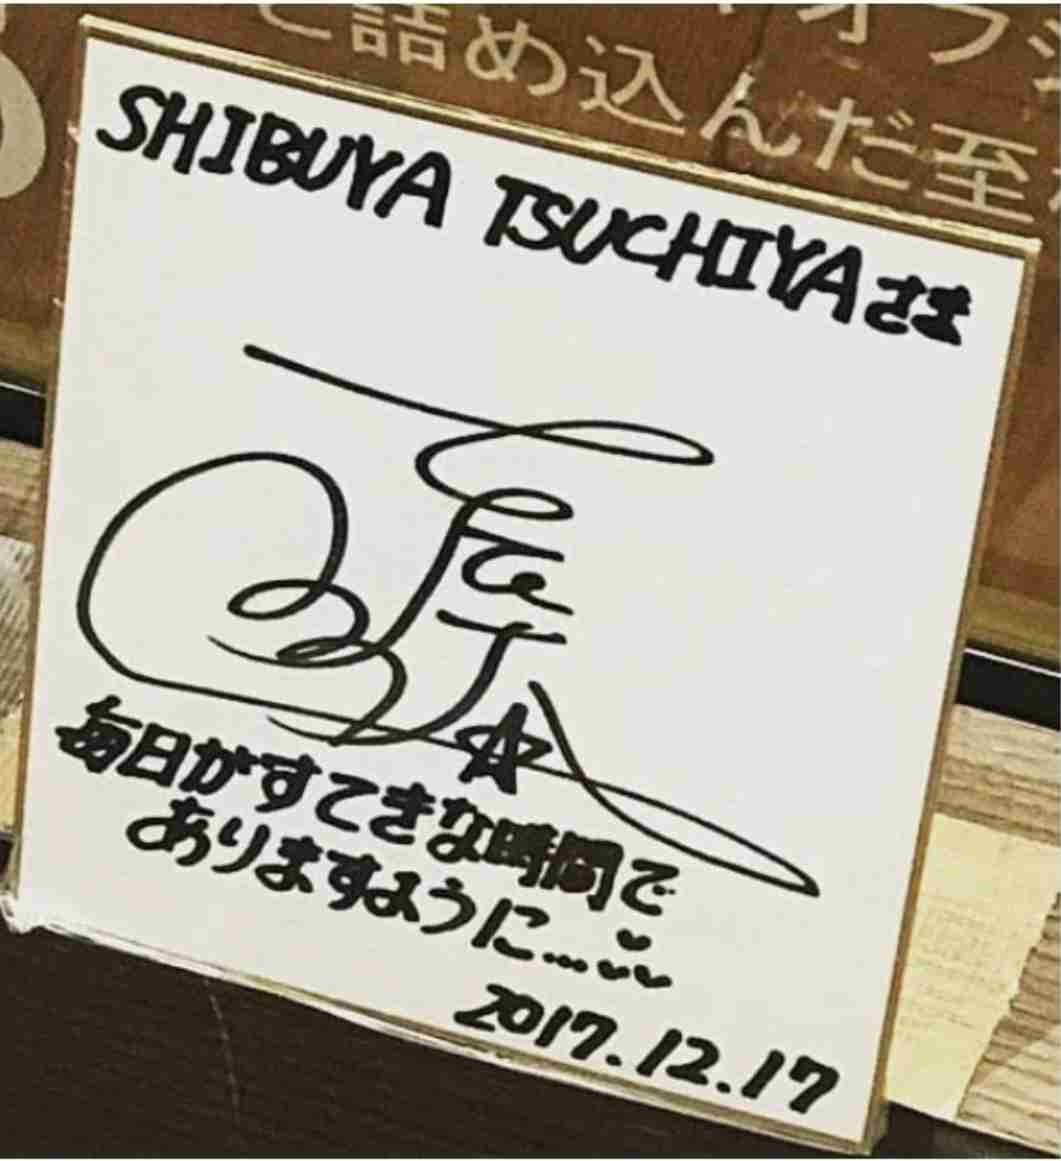 と詰め込んだ至
オフ
SHIBUYA TSUCHIYAさま
毎日がすてきな時間で
ありますように…
2017.12.17